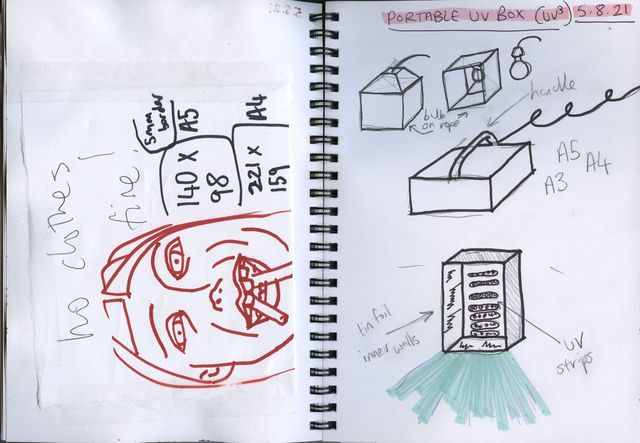 5.8.21
no clothes
fire!
5mm
border
A5
A4
140 X
98
221 X
159
PORTABLE UV BOX (UV³) 5.8.21
bulb
on rope
handle
A5
A4
A3
tin foil
inner walls
UV
strips